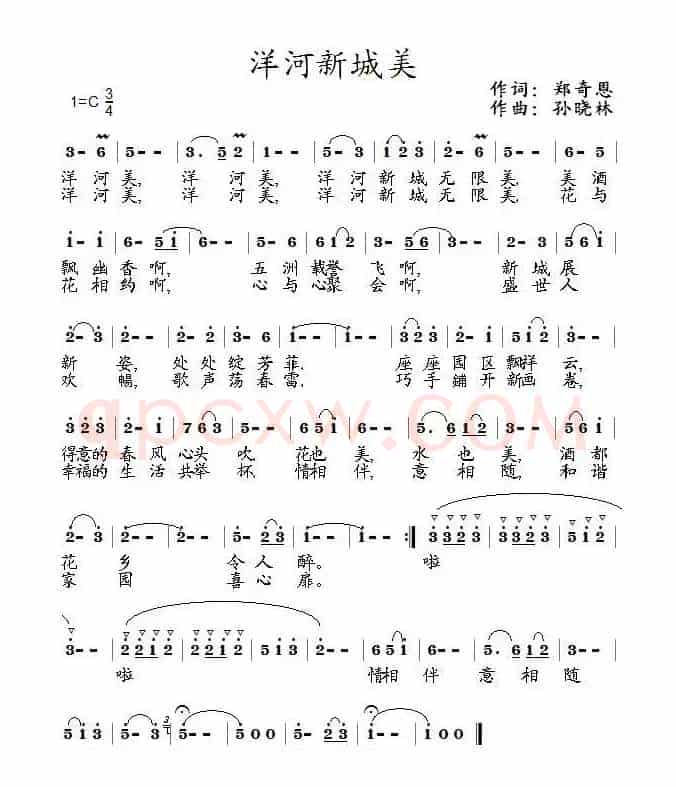 洋河新城美
1=C 3/4
作词：郑奇恩
作曲：孙晓林
3- 6 | 5-- | 3. 5 2 | 1-- | 5- 3 | 1 2 3 | 2-- | 6- 5
洋 河 美, 洋 河 美, 洋 河 新 城 无 限 美, 美 酒
洋 河 美, 洋 河 美, 洋 河 新 城 无 限 美, 花 与
1- 1 | 6- 5 1 | 6-- | 5- 6 | 6 1 2 | 3- 5 6 | 3-- | 2- 3 | 5 6 1
飘 幽 香 啊, 五 洲 载誉 飞 啊, 新 城 展
花 相 约 啊, 心 与 心聚 会 啊, 盛 世 人
2- 3 | 2-- | 2- 2 | 3- 6 | 1-- | 1-- | 3 2 3 | 2- 2 | 5 1 2
新 姿, 处 处 绽 芳 菲. 座 座 园 区 飘祥 云,
欢 畅, 歌 声 荡 春 雷, 巧 手 铺 开 新画 卷,
3 2 3 | 2- 2 | 7 6 3 | 5-- | 6 5 1 | 6-- | 5. 6 1 2 | 3-- | 5 6 1
得意的 春 风 心头 吹, 花也 美, 水 也 美, 酒 都
幸福的 生 活 共举 杯, 情相 伴, 意 相 随, 和 谐
2- 3 | 2-- | 2-- | 5- 2 3 | 1-- | 1-- :| 3 3 2 3 | 3 3 2 3 | 5 1 2
花 乡 令 人 醉。 啦
家 园 喜 心 扉。
3-- | 2 2 1 2 | 2 2 1 2 | 5 1 3 | 2-- | 6 5 1 | 6-- | 5. 6 1 2 | 3--
啦 情相 伴 意 相 随
5 1 3 | 5- 3 | 5-- | 5-- | 5 0 0 | 1-- | 1-- | 1-- | 1 0 0
qpcxw.COM